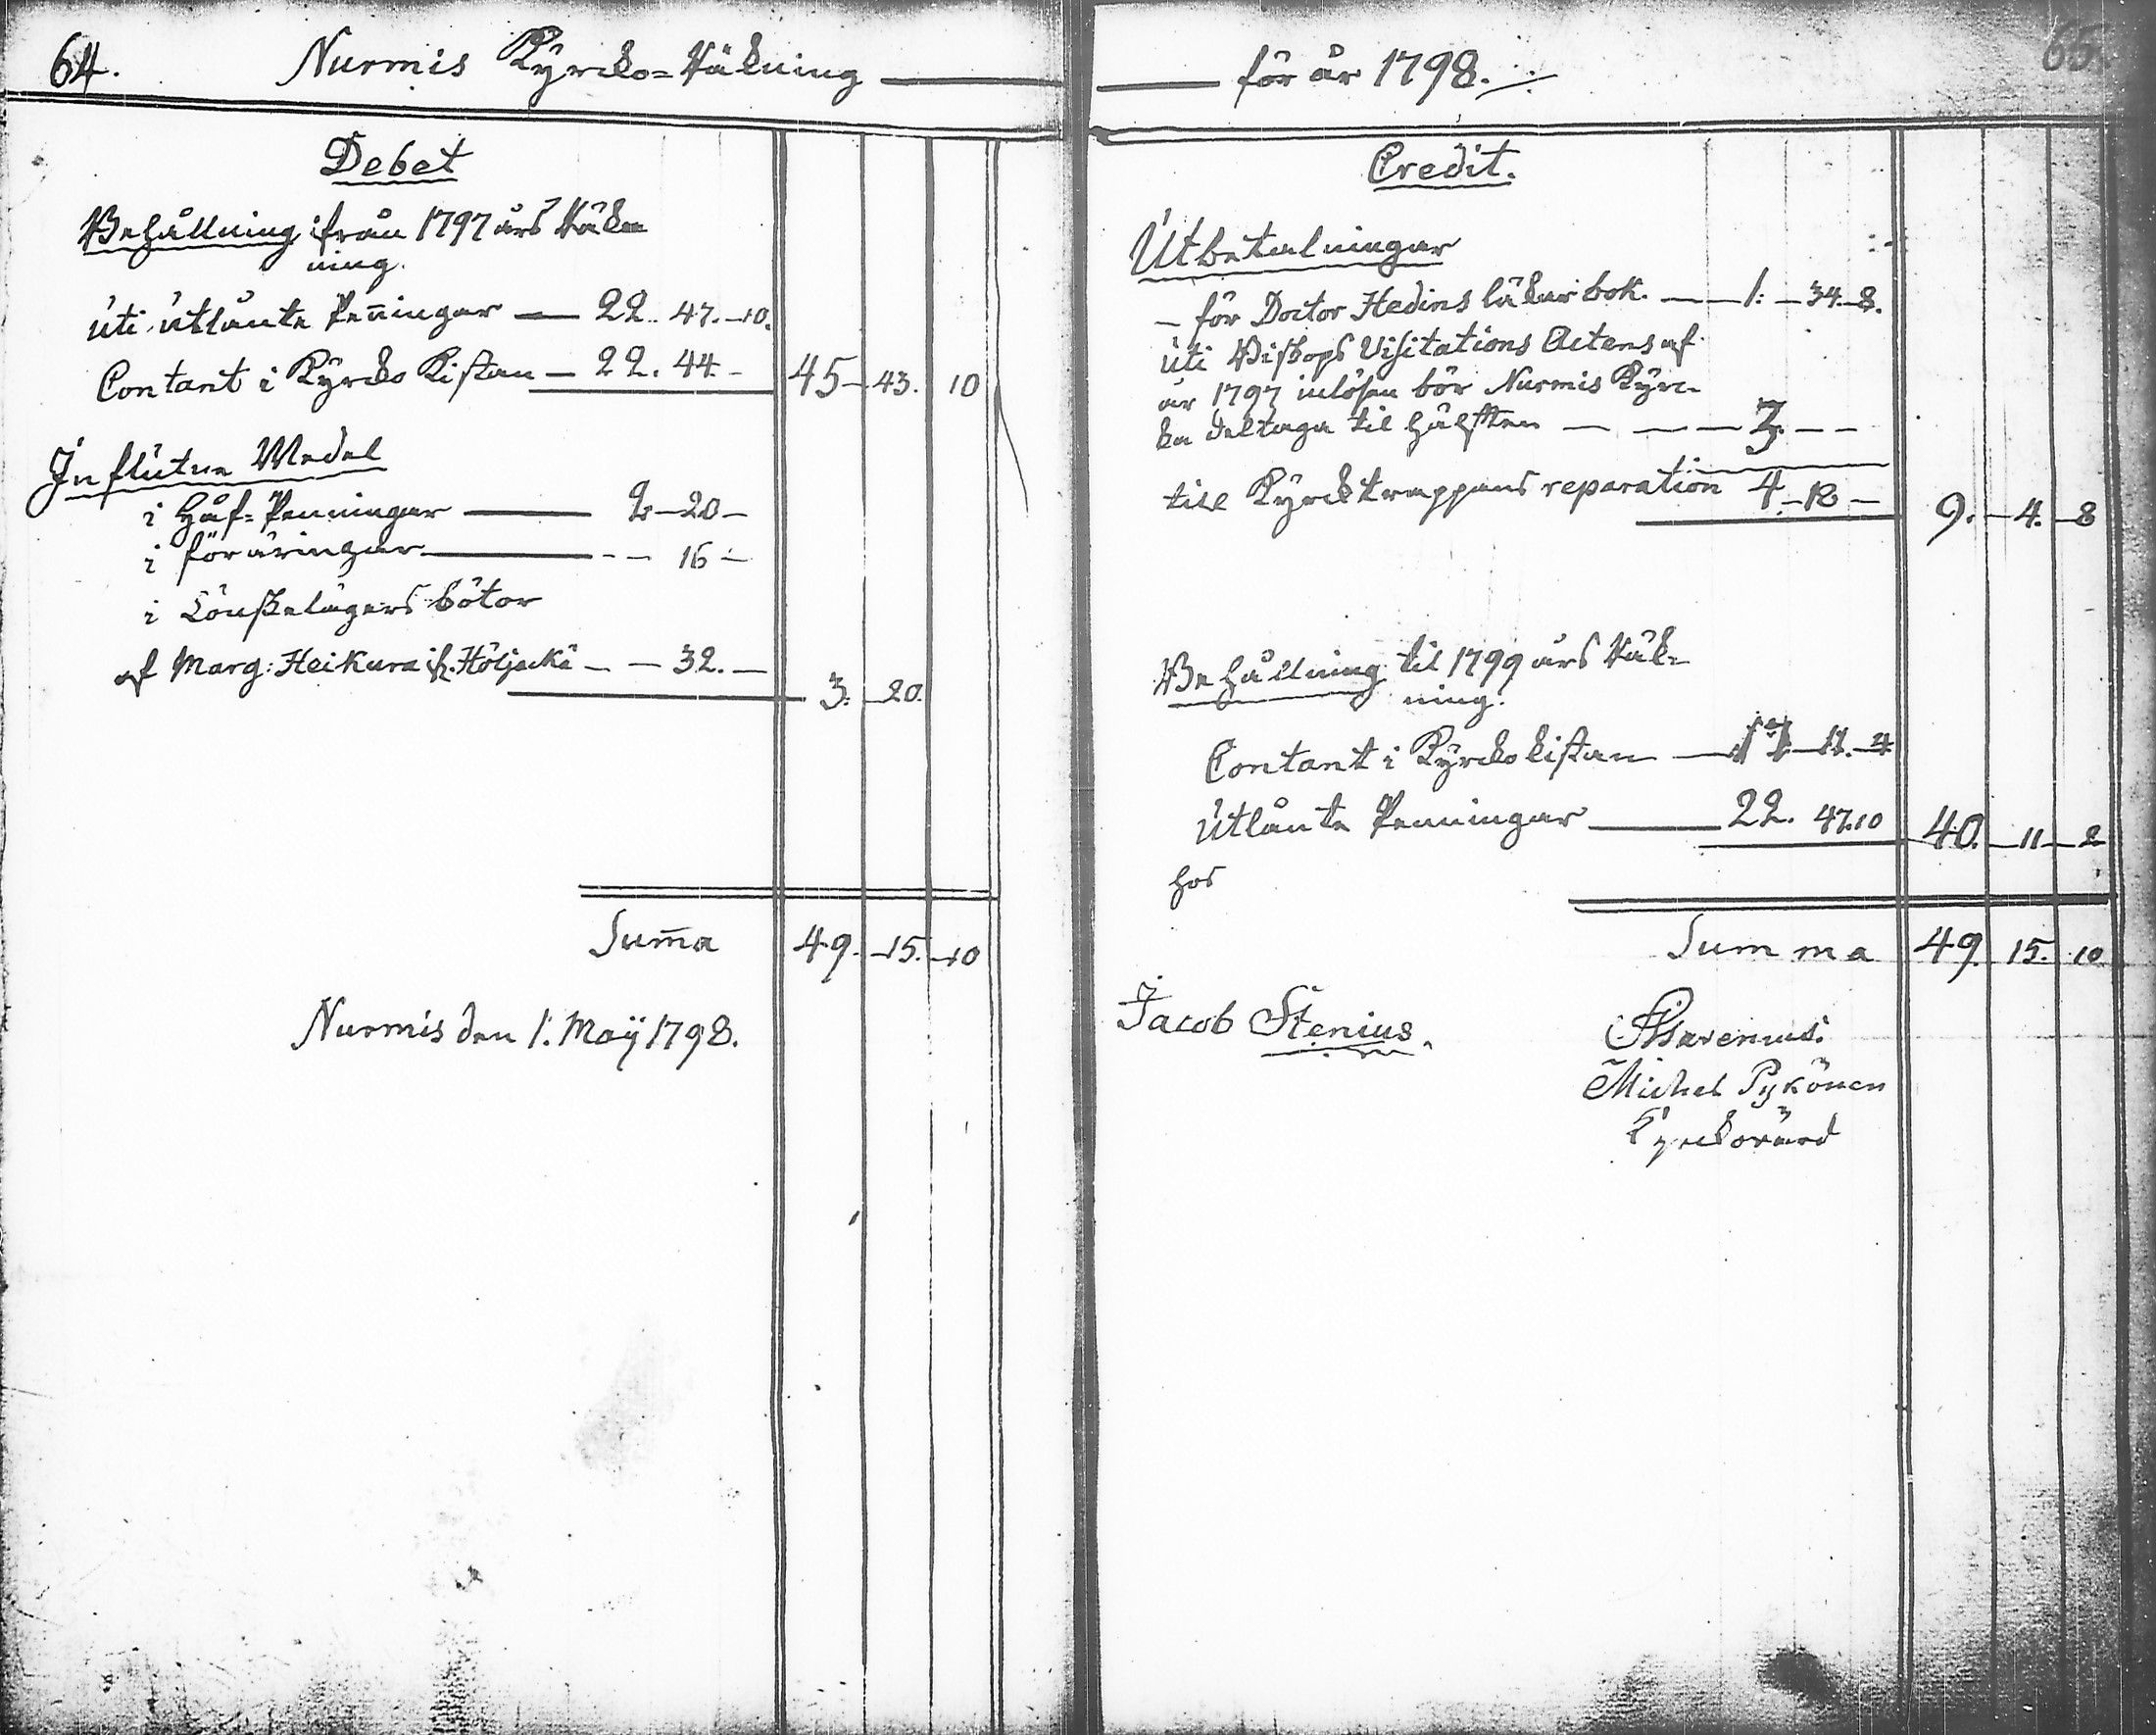 64.
Nurmis Kyrcko=Räkning
Debet
Behållning ifrån 1797 års Räk=
ning.
uti utlånte Peñingar — 22. 47. 10.
Contant i Kyrcko Kistan — 22. 44. — 45 — 43. 10
Influtne Medel
i Håf=Penningar — 2 — 20 —
i föräringar — — — 16 —
i Lönskelägers böter
af Marg: Heikura ifr. Höljäckä — — 32. —
3. — 20.
Sum̄a 49. — 15. — 10
Nurmis den 1. Maÿ 1798.
65.
för år 1798.
Credit.
Utbetalningar
— för Doctor Hedins läkarbok. — — 1. — 34. 8.
uti Biskops Visitations Actens af
år 1797 inlösen bör Nurmis Kyrc=
ka deltaga til hälften — — — 3. — —
till Kyrcktrappans reparation 4. — 18 — 9. — 4. — 8
Behållning til 1799 års Räk=
ning.
Contant i Kyrcko kistan — 17 — 11. — 4
Utlånte Penningar — 22. 47. 10 40. — 11 — 2
hos
Summa 49. 15. 10
Jacob Stenius.
Michel Pykönen
Kyrckovärd